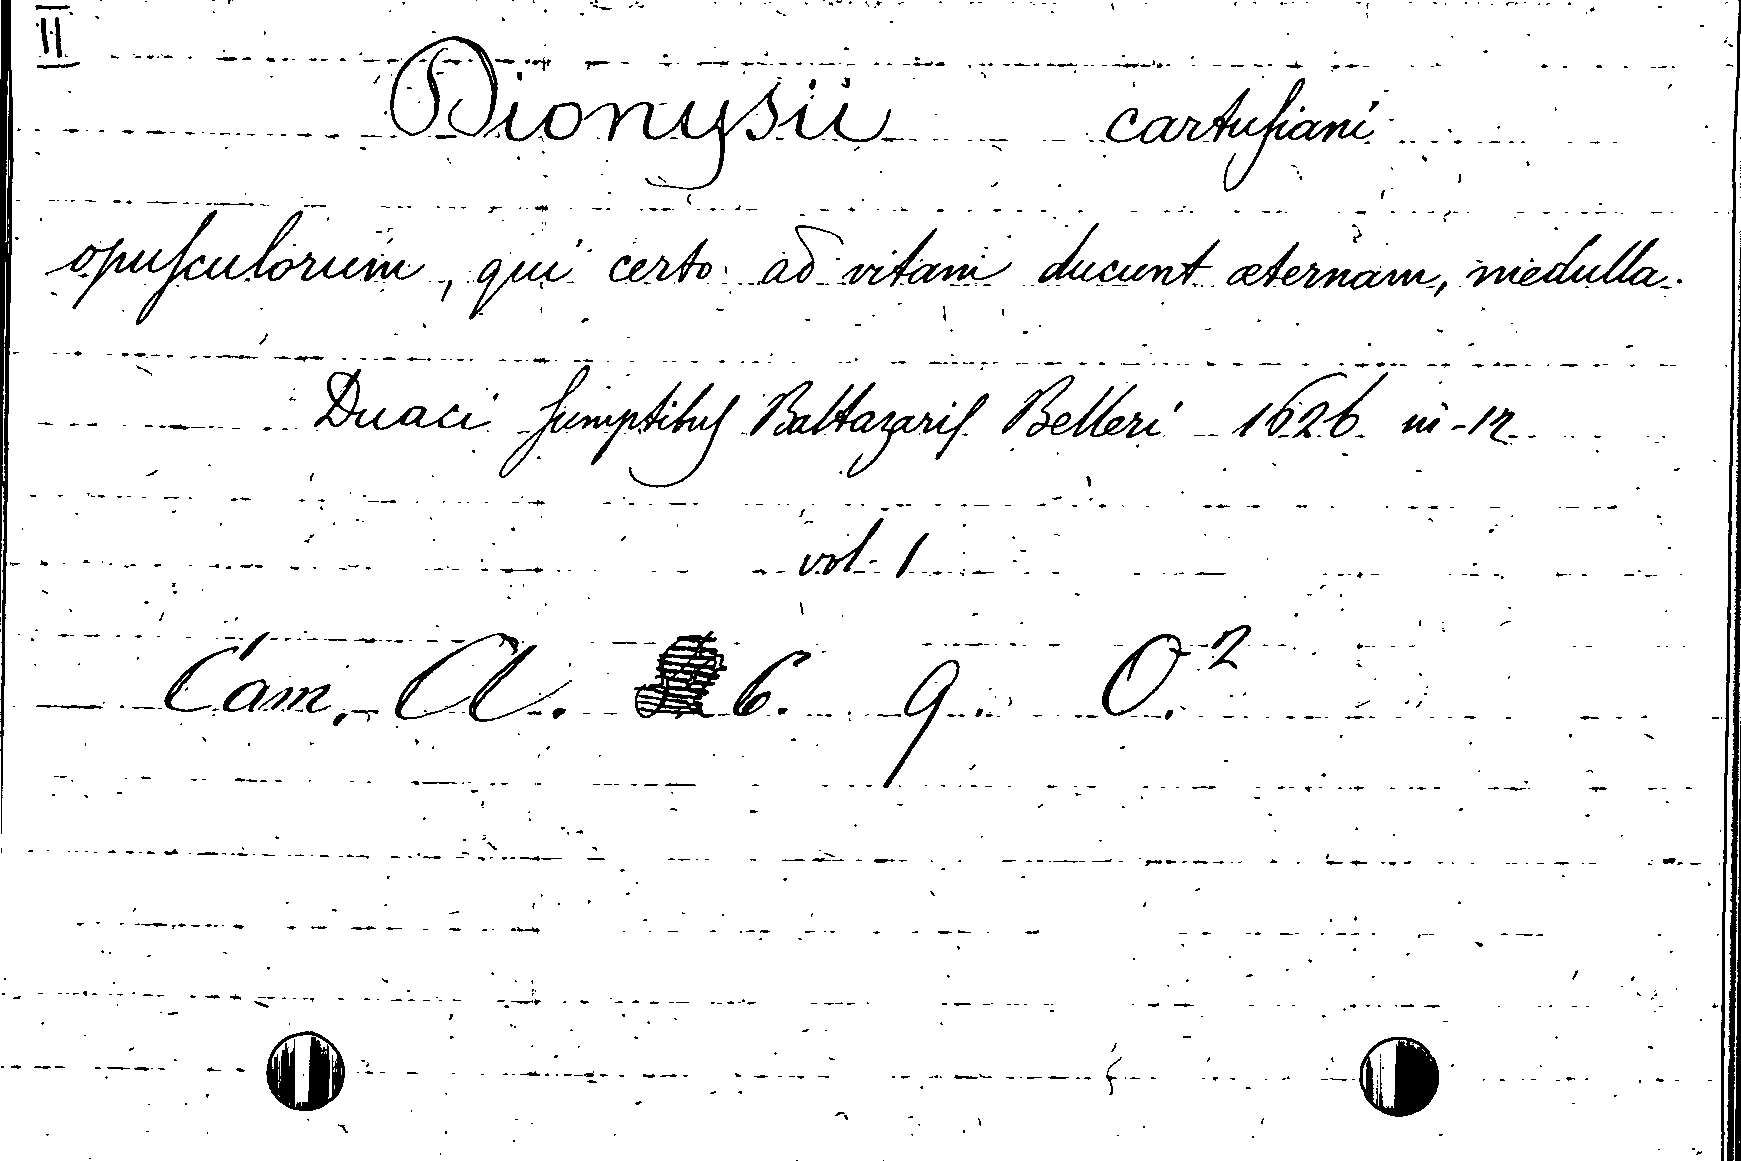 II
Dionysii cartuſiani
opuſculorum, qui certo ad vitam ducunt æternam, medulla.
Duaci ſumptibuſ Baltazariſ Belleri 1626 in-12
vol. 1
Cam. A. 6. 9. O.2